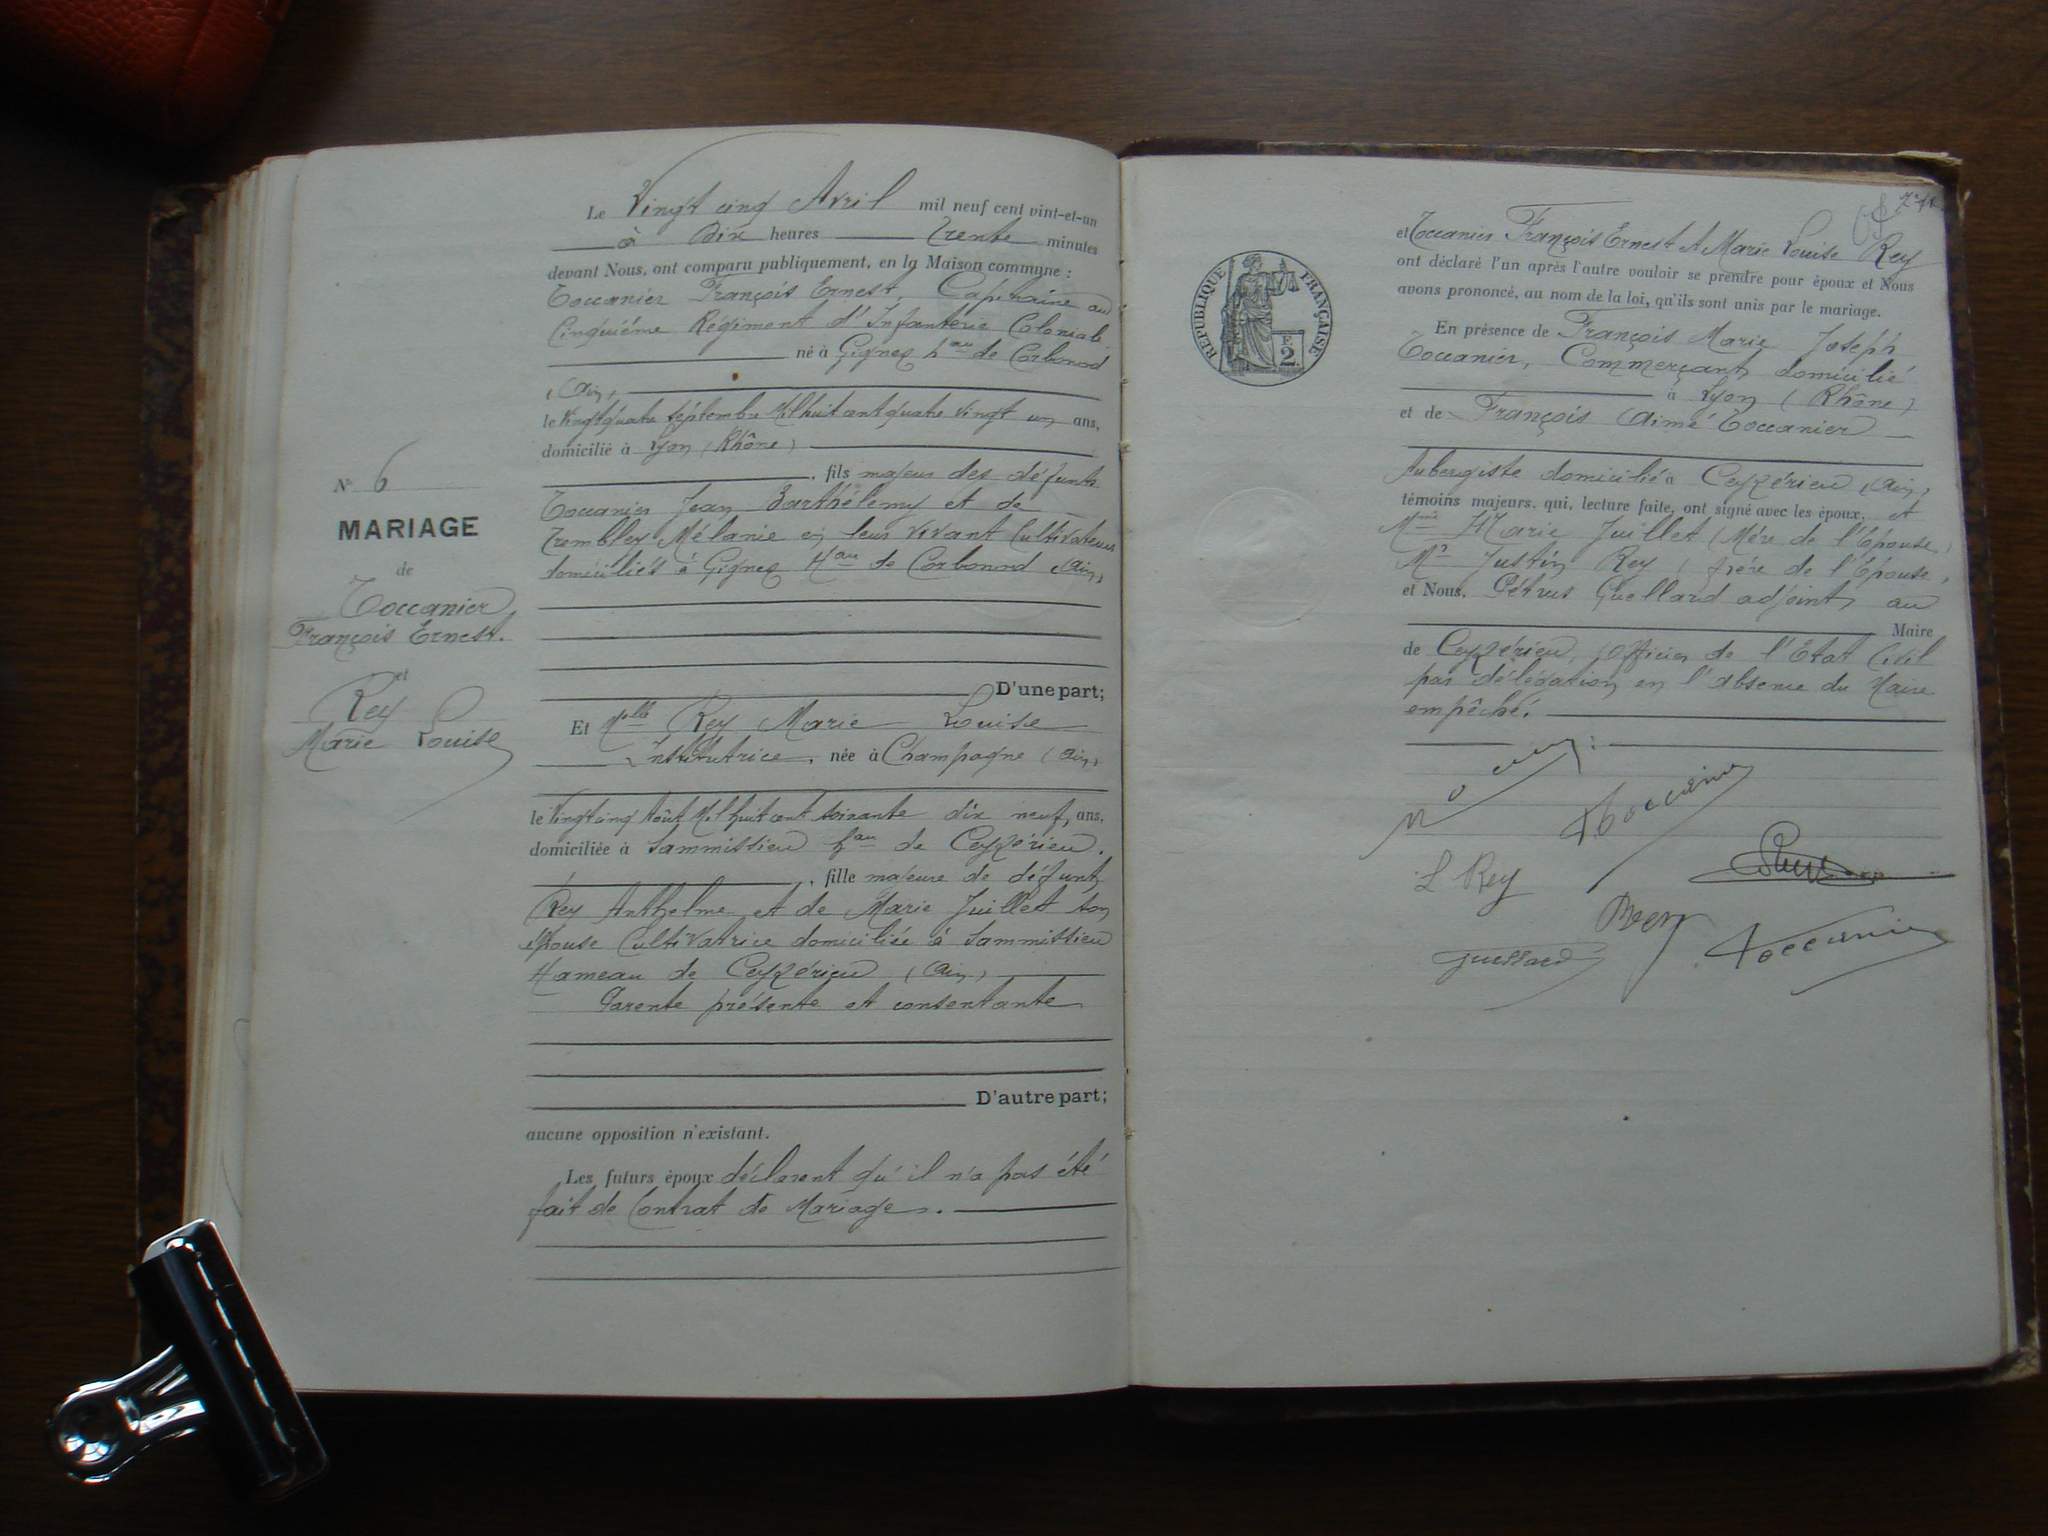 Le Vingt cinq Avril mil neuf cent vint-et-un
à Dix heures Trente minutes
devant Nous, ont comparu publiquement, en la Maison commune :
Toccanier François Ernest, Capitaine au
Cinquième Régiment d'Infanterie Coloniale
né à Gignez hau de Corbonod
(Ain)
le Vingt quatre Septembre Mil huit cent quatre vingt un ans,
domicilié à Lyon (Rhône)
, fils majeur des défunts
Toccanier Jean Barthélemy et de
Trembley Mélanie en leur vivant Cultivateurs
domiciliés à Gignez Hau de Corbonod (Ain)
D'une part;
Et Melle Rey Marie Louise
Institutrice, née à Champagne (Ain)
le Vingt cinq Août Mil huit cent soixante dix neuf, ans,
domiciliée à Sammissieu hau de Ceyzérieu.
, fille majeure de défunt
Rey Anthelme et de Marie Juillet son
épouse Cultivatrice domiciliée à Sammissieu
Hameau de Ceyzérieu (Ain)
Parente présente et consentante
D'autre part;
aucune opposition n'existant.
Les futurs époux déclarent qu'il n'a pas été
fait de Contrat de Mariage.
N° 6
MARIAGE
de
Toccanier
François Ernest.
et
Rey
Marie Louise
RÉPUBLIQUE FRANÇAISE
F.
2
et Toccanier François Ernest et Marie Louise Rey
ont déclaré l'un après l'autre vouloir se prendre pour époux et Nous
avons prononcé, au nom de la loi, qu'ils sont unis par le mariage.
En présence de François Marie Joseph
Toccanier, Commerçant domicilié
à Lyon (Rhône)
et de François Aimé Toccanier
Aubergiste domicilié à Ceyzérieu (Ain)
témoins majeurs, qui, lecture faite, ont signé avec les époux, et
Mme Marie Juillet (Mère de l'épouse)
Mr Justin Rey (frère de l'épouse)
et Nous, Pétrus Guellard adjoint au
Maire
de Ceyzérieu, Officier de l'Etat Civil
par délégation en l'absence du Maire
empêché.
Toccanier
L Rey
Rey
Guellard
Toccanier